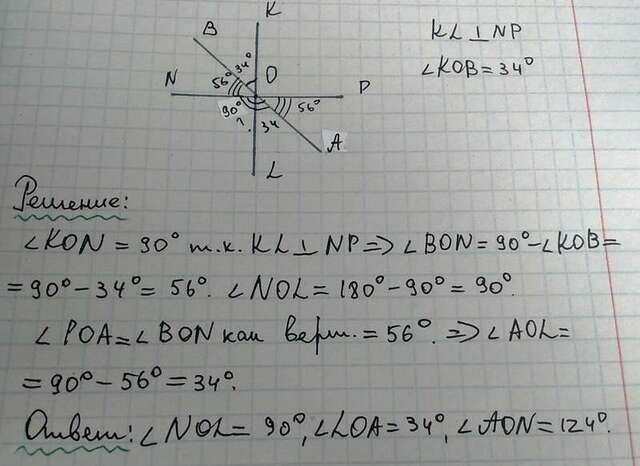 K
B
KL ⊥ NP
34°
∠KOB = 34°
N
56°
O
P
90°
56°
?
34
A
L
Решение:
∠KON = 90° т.к. KL ⊥ NP => ∠BON = 90° - ∠KOB =
= 90° - 34° = 56°. ∠NOL = 180° - 90° = 90°.
∠POA = ∠BON как верт. = 56°. => ∠AOL =
= 90° - 56° = 34°.
Ответ: ∠NOL = 90°, ∠LOA = 34°, ∠AON = 124°.